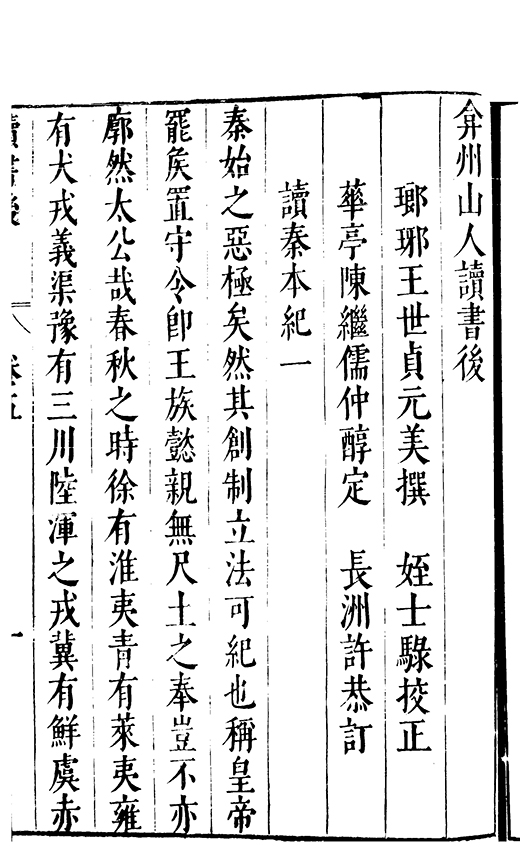 弇州山人讀書後
瑯琊王世貞元美撰　姪士騄挍正
華亭陳繼儒仲醇定　長洲許恭訂
讀秦本紀一
秦始之惡極矣然其創制立法可紀也稱皇帝
罷侯置守令卽王族懿親無尺土之奉豈不亦
廓然太公哉春秋之時徐有淮夷青有萊夷雍
有犬戎義渠豫有三川陸渾之戎冀有鮮虞赤
讀書後　卷五　一